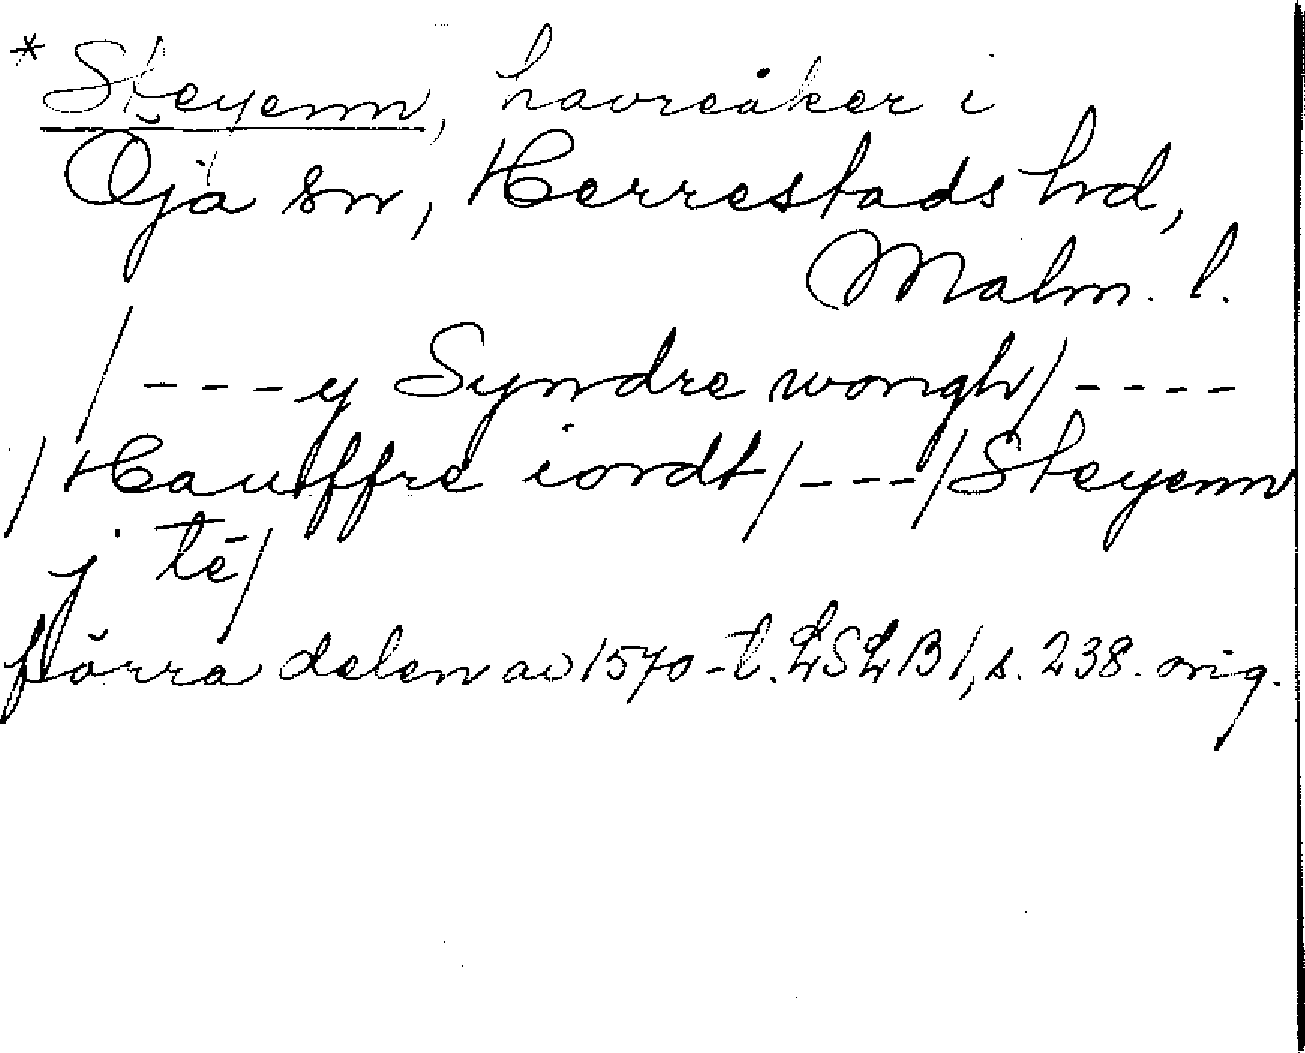 * Steyenn, havreåker i
Öja sn, Herrestads hd,
Malm. l.
/ - - - y Syndre wongh / - - - -
/ Hauffre iordt / - - - / Steyenn
j tē /
förra delen av 1570-t. LSLB 1, s. 238. orig.